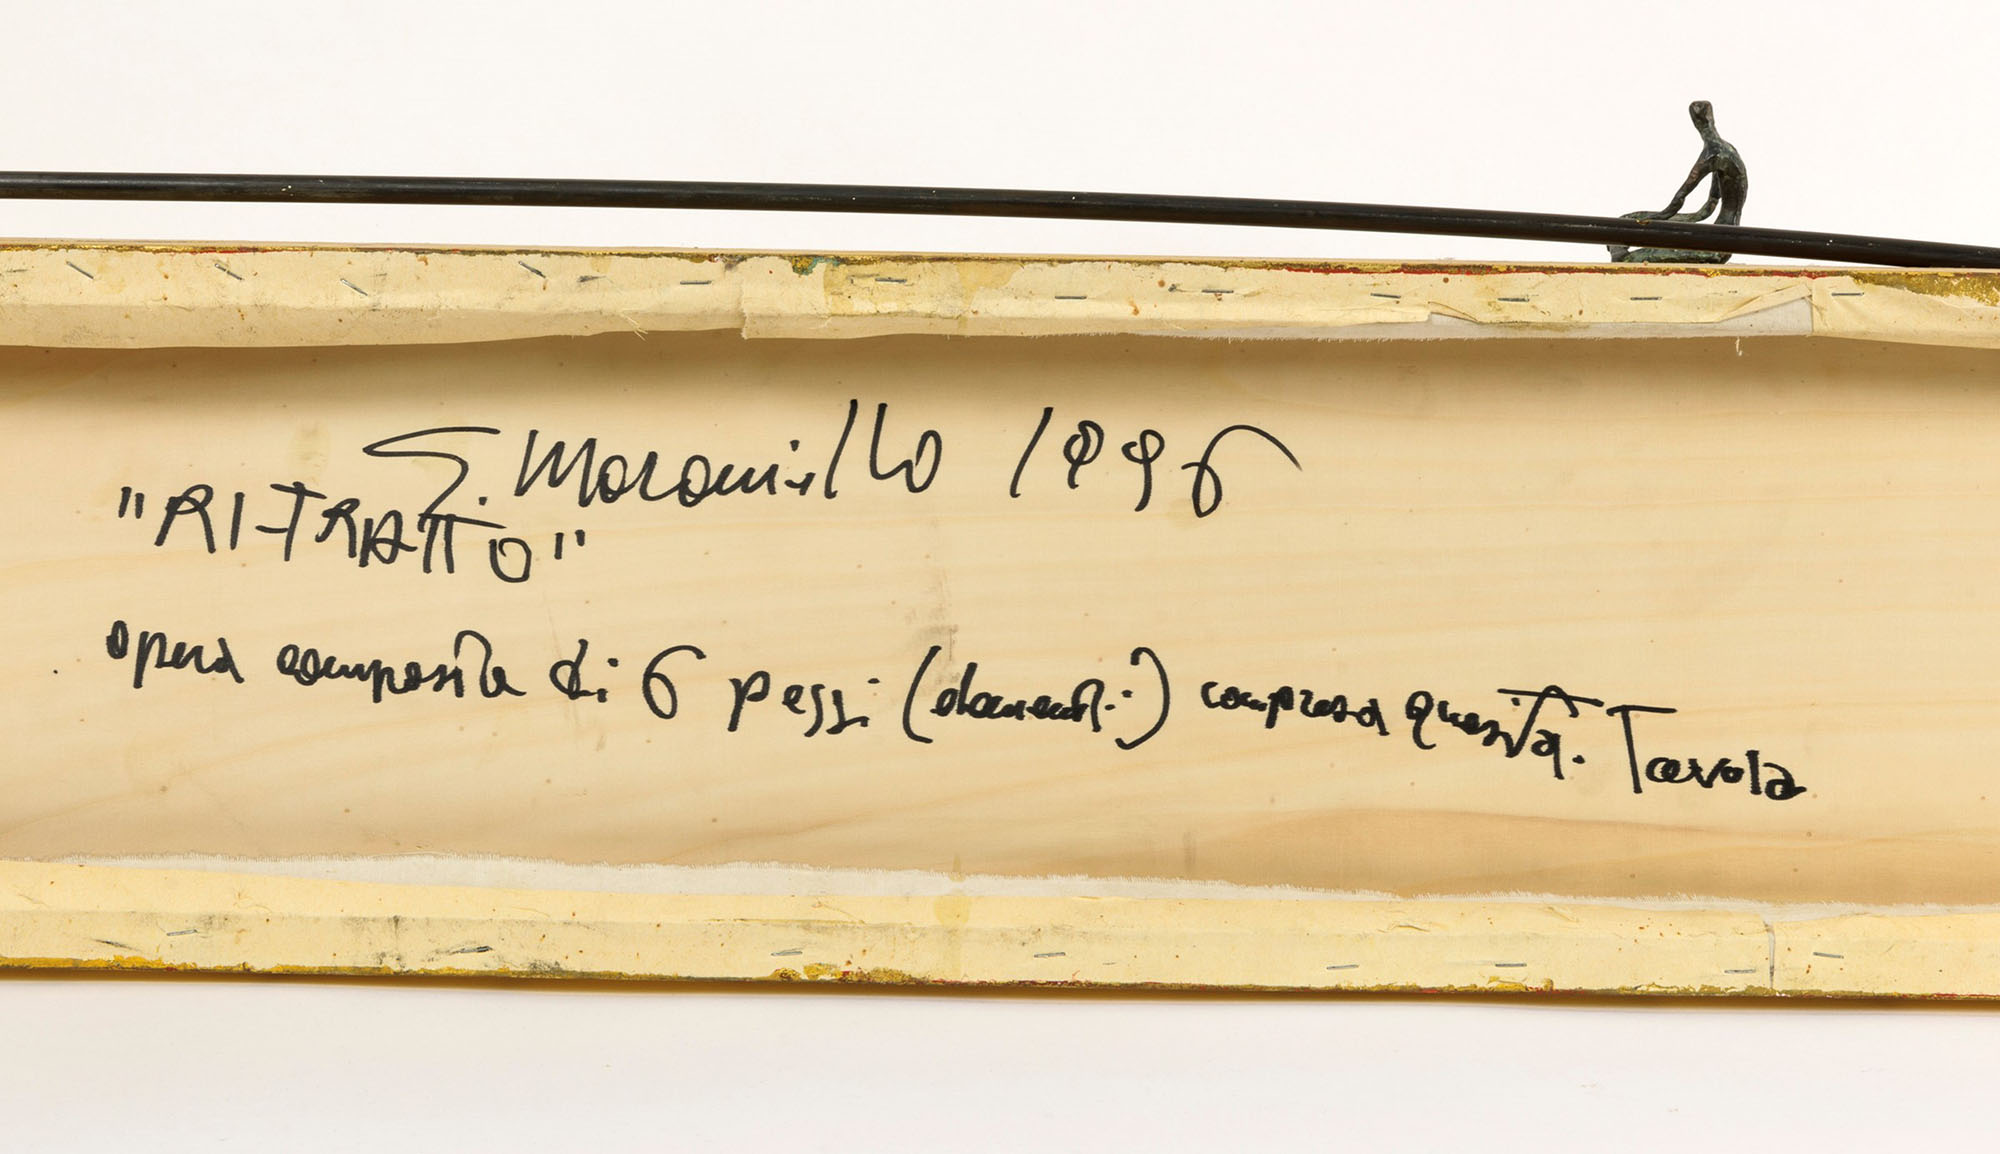 G. Maraniello 1996
"RI-TRATTO"
opera composta di 6 pezzi (elementi) compresa questa. Tavola